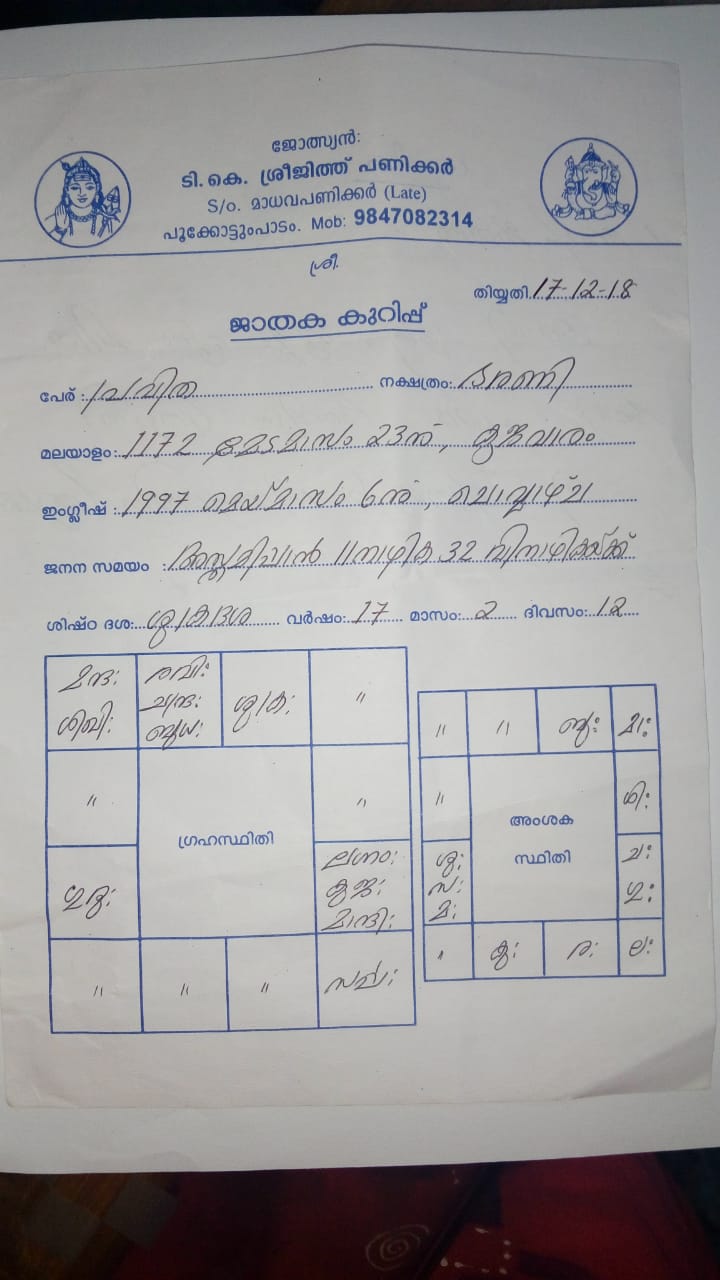 ജോത്സ്യൻ:
ടി. കെ. ശ്രീജിത്ത് പണിക്കർ
S/o. മാധവപണിക്കർ (Late)
പൂക്കോട്ടുംപാടം. Mob: 9847082314
ശ്രീ.
തിയ്യതി.17-12-18
ജാതക കുറിപ്പ്
പേര് : പ്രവിത നക്ഷത്രം: ഭരണി
മലയാളം: 1172 മേടമാസം 23ന്, കുജവാരം
ഇംഗ്ലീഷ് : 1997 മെയ്മാസം 6ന്, ചൊവ്വാഴ്ച
ജനന സമയം : അസ്തമിപ്പാൻ 11നാഴിക 32 വിനാഴികയ്ക്ക്
ശിഷ്ഠ ദശ: ശുക്രദശ വർഷം: 17 മാസം: 2 ദിവസം: 12
മന്ദ: രവി: ശുക്ര: "
ശിഖി: ചന്ദ്ര:
ബുധ:
" "
ഗ്രഹസ്ഥിതി
ഗുരു: ലഗ്നം:
കുജ:
മാന്ദി:
" " " സർപ്പ:
" " ബു: മാ:
" ശി:
അംശക
സ്ഥിതി
ശു: ച:
സ: ഗു:
മ:
" കു: ര: ല: